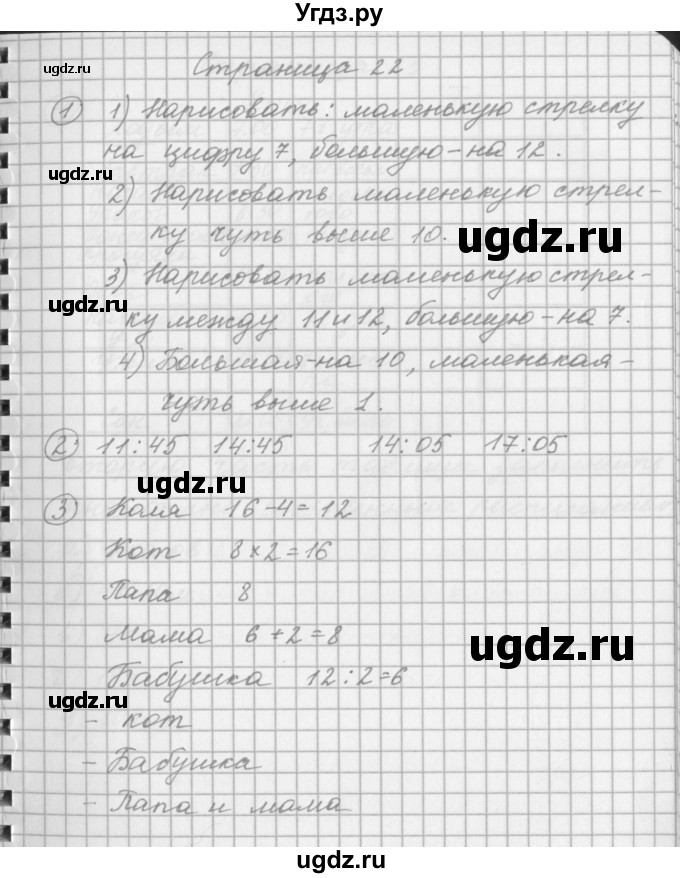 Угдз.ру
Страница 22
ugdz.ru
1 1) Нарисовать: маленькую стрелку
на цифру 7, большую – на 12.
ugdz.ru
2) Нарисовать маленькую стрел-
ку чуть выше 10.
ugdz.ru
3) Нарисовать маленькую стрел-
ugdz.ru
ку между 11 и 12, большую – на 7.
4) Большая – на 10, маленькая –
чуть выше 1.
2 11:45 14:45 14:05 17:05
ugdz.ru
3 Коля 16-4=12
ugdz.ru
Кот 8×2=16
Папа 8
Мама 6+2=8
ugdz.ru
Бабушка 12:2=6
ugdz.ru
- кот
- Бабушка
- Папа и мама
ugdz.ru